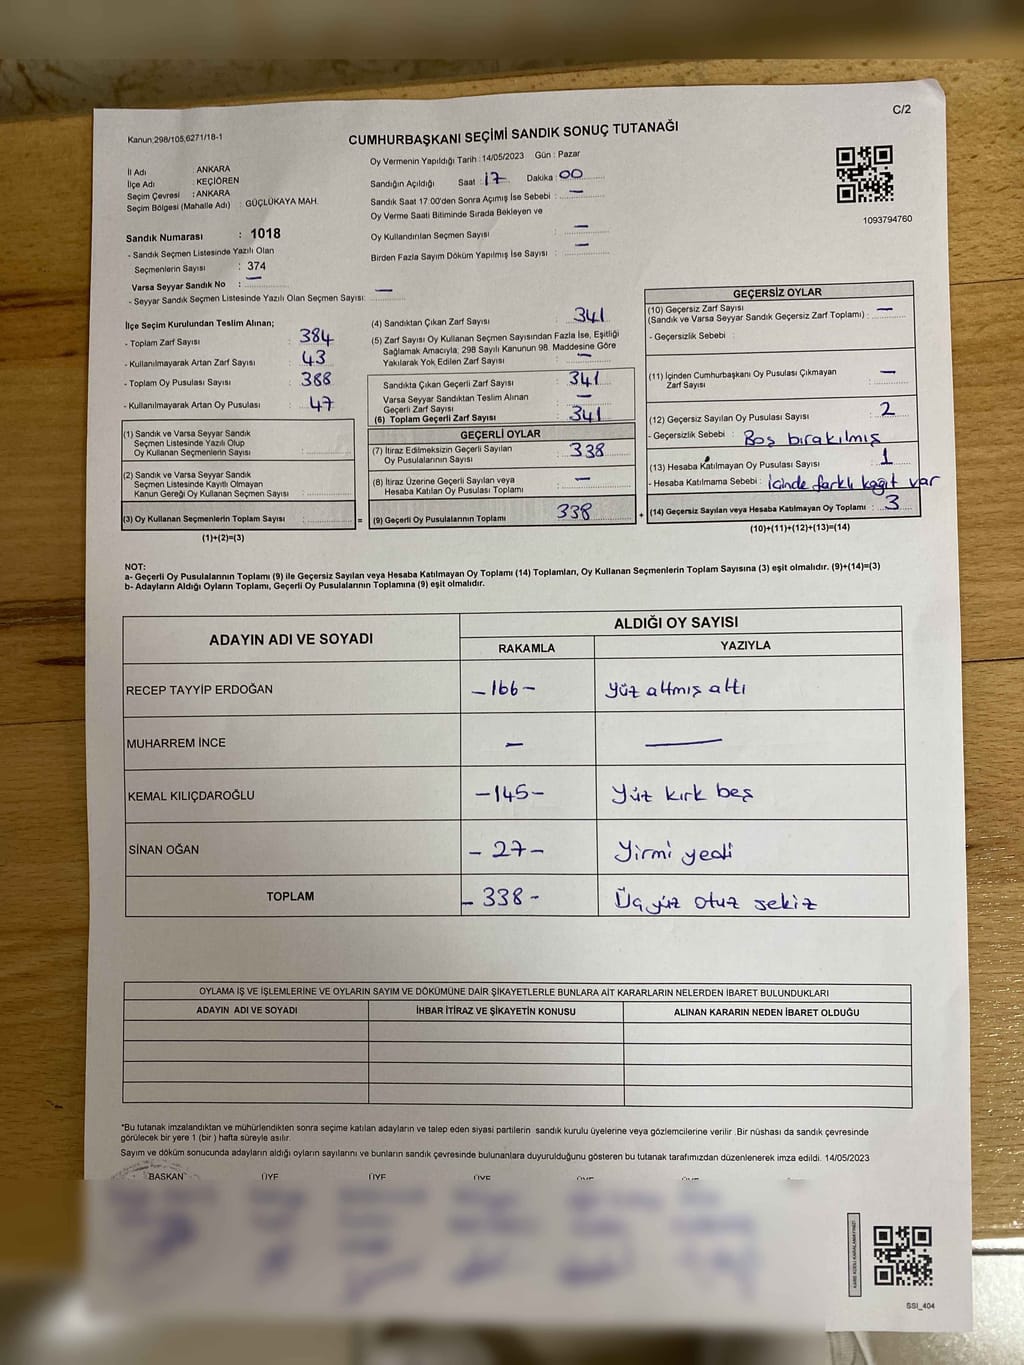 C/2
Kanun;298/105,6271/18-1
CUMHURBAŞKANI SEÇİMİ SANDIK SONUÇ TUTANAĞI
İl Adı : ANKARA
İlçe Adı : KEÇİÖREN
Seçim Çevresi : ANKARA
Seçim Bölgesi (Mahalle Adı) : GÜÇLÜKAYA MAH.
Oy Vermenin Yapıldığı Tarih : 14/05/2023 Gün : Pazar
Sandığın Açıldığı Saat : 17 Dakika : 00
Sandık Saat 17.00'den Sonra Açımış İse Sebebi : —
Oy Verme Saati Bitiminde Sırada Bekleyen ve
Oy Kullandırılan Seçmen Sayısı : —
Birden Fazla Sayım Döküm Yapılmış İse Sayısı : —
1093794760
Sandık Numarası : 1018
- Sandık Seçmen Listesinde Yazılı Olan
Seçmenlerin Sayısı : 374
Varsa Seyyar Sandık No : —
- Seyyar Sandık Seçmen Listesinde Yazılı Olan Seçmen Sayısı: —
İlçe Seçim Kurulundan Teslim Alınan;
- Toplam Zarf Sayısı : 384
- Kullanılmayarak Artan Zarf Sayısı : 43
- Toplam Oy Pusulası Sayısı : 388
- Kullanılmayarak Artan Oy Pusulası : 47
(1) Sandık ve Varsa Seyyar Sandık
Seçmen Listesinde Yazılı Olup
Oy Kullanan Seçmenlerin Sayısı :
(2) Sandık ve Varsa Seyyar Sandık
Seçmen Listesinde Kayıtlı Olmayan
Kanun Gereği Oy Kullanan Seçmen Sayısı :
(3) Oy Kullanan Seçmenlerin Toplam Sayısı :
(1)+(2)=(3)
(4) Sandıktan Çıkan Zarf Sayısı : 341
(5) Zarf Sayısı Oy Kullanan Seçmen Sayısından Fazla İse, Eşitliği
Sağlamak Amacıyla; 298 Sayılı Kanunun 98. Maddesine Göre
Yakılarak Yok Edilen Zarf Sayısı : —
Sandıkta Çıkan Geçerli Zarf Sayısı : 341
Varsa Seyyar Sandıktan Teslim Alınan
Geçerli Zarf Sayısı : —
(6) Toplam Geçerli Zarf Sayısı : 341
GEÇERLİ OYLAR
(7) İtiraz Edilmeksizin Geçerli Sayılan
Oy Pusulalarının Sayısı : 338
(8) İtiraz Üzerine Geçerli Sayılan veya
Hesaba Katılan Oy Pusulası Toplamı : —
= (9) Geçerli Oy Pusulalarının Toplamı : 338
GEÇERSİZ OYLAR
(10) Geçersiz Zarf Sayısı
(Sandık ve Varsa Seyyar Sandık Geçersiz Zarf Toplamı) : —
- Geçersizlik Sebebi :
(11) İçinden Cumhurbaşkanı Oy Pusulası Çıkmayan
Zarf Sayısı : —
(12) Geçersiz Sayılan Oy Pusulası Sayısı : 2
- Geçersizlik Sebebi : Boş bırakılmış
(13) Hesaba Katılmayan Oy Pusulası Sayısı : 1
- Hesaba Katılmama Sebebi : İçinde farklı kağıt var
+ (14) Geçersiz Sayılan veya Hesaba Katılmayan Oy Toplamı : 3
(10)+(11)+(12)+(13)=(14)
NOT:
a- Geçerli Oy Pusulalarının Toplamı (9) ile Geçersiz Sayılan veya Hesaba Katılmayan Oy Toplamı (14) Toplamları, Oy Kullanan Seçmenlerin Toplam Sayısına (3) eşit olmalıdır. (9)+(14)=(3)
b- Adayların Aldığı Oyların Toplamı, Geçerli Oy Pusulalarının Toplamına (9) eşit olmalıdır.
ADAYIN ADI VE SOYADI
ALDIĞI OY SAYISI
RAKAMLA YAZIYLA
RECEP TAYYİP ERDOĞAN -166- Yüz altmış altı
MUHARREM İNCE — —
KEMAL KILIÇDAROĞLU -145- Yüz kırk beş
SİNAN OĞAN -27- Yirmi yedi
TOPLAM -338- Üçyüz otuz sekiz
OYLAMA İŞ VE İŞLEMLERİNE VE OYLARIN SAYIM VE DÖKÜMÜNE DAİR ŞİKAYETLERLE BUNLARA AİT KARARLARIN NELERDEN İBARET BULUNDUKLARI
ADAYIN ADI VE SOYADI İHBAR İTİRAZ VE ŞİKAYETİN KONUSU ALINAN KARARIN NEDEN İBARET OLDUĞU
*Bu tutanak imzalandıktan ve mühürlendikten sonra seçime katılan adayların ve talep eden siyasi partilerin sandık kurulu üyelerine veya gözlemcilerine verilir .Bir nüshası da sandık çevresinde
görülecek bir yere 1 (bir ) hafta süreyle asılır.
Sayım ve döküm sonucunda adayların aldığı oyların sayılarını ve bunların sandık çevresinde bulunanlara duyurulduğunu gösteren bu tutanak tarafımızdan düzenlenerek imza edildi. 14/05/2023
BAŞKAN ÜYE ÜYE ÜYE ÜYE ÜYE
SSI_404